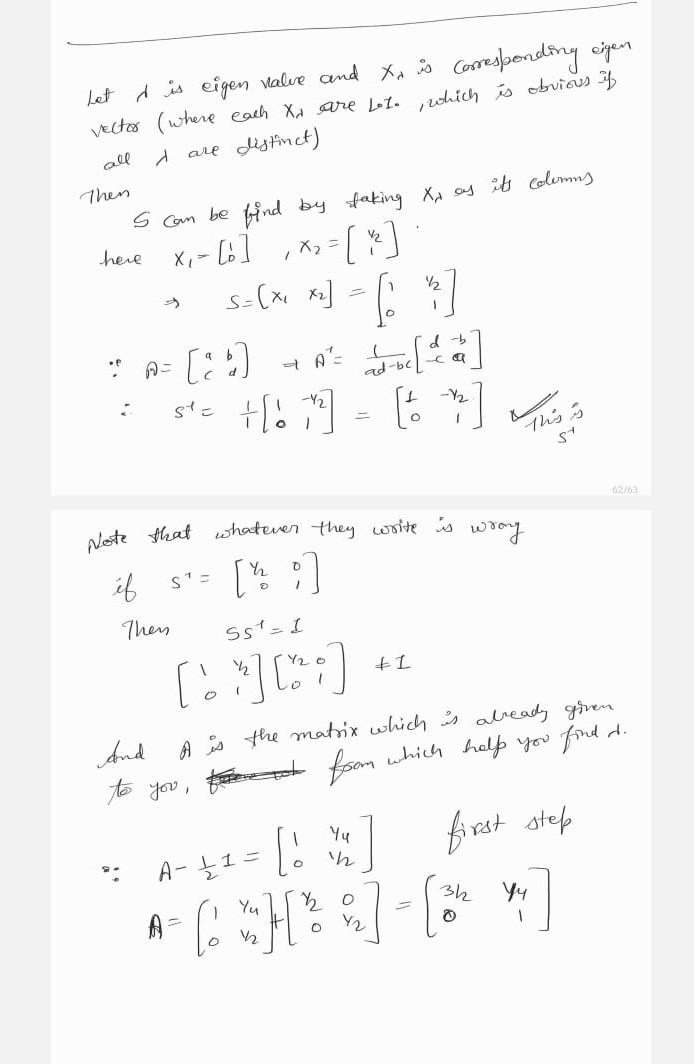 Let λ is eigen value and Xλ is corresponding eigen
vector (where each Xλ are L.I. , which is obvious if
all λ are distinct)
Then
S can be find by taking Xλ as its columns
here X₁ = [1 0] , X₂ = [1/2 1]
⇒ S = (X₁ X₂) = [1 1/2 0 1]
∵ A = [a b c d] → A⁻¹ = 1/(ad-bc) [d -b -c a]
∴ S⁻¹ = 1/1 [1 -1/2 0 1] = [1 -1/2 0 1] This is
S⁻¹
62/63
Note that whatever they write is wrong
if S⁻¹ = [1/2 0 0 1]
Then SS⁻¹ = I
[1 1/2 0 1] [1/2 0 0 1] ≠ I
And A is the matrix which is already given
to you, from which help you find λ.
∵ A - 1/2 I = [1 1/4 0 1/2] first step
A = [1 1/4 0 1/2] + [1/2 0 0 1/2] = [3/2 1/4 0 1]